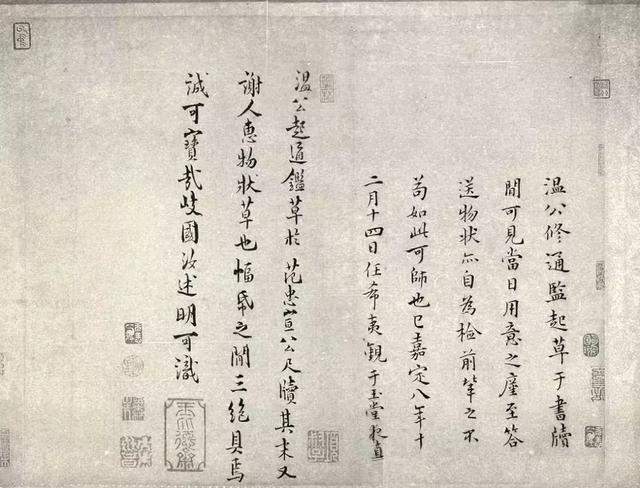 溫公修通監起草于書牘
間可見當日用意之廑至答
送物狀亦自為檢前輩之不
苟如此可師也已嘉定八年十
二月十四日任希夷觀于玉堂夜直
溫公起通鑑草於范忠宣公尺牘其末又
謝人惠物狀草也幅帋之間三絕具焉
誠可寶哉歧國汝述明可識